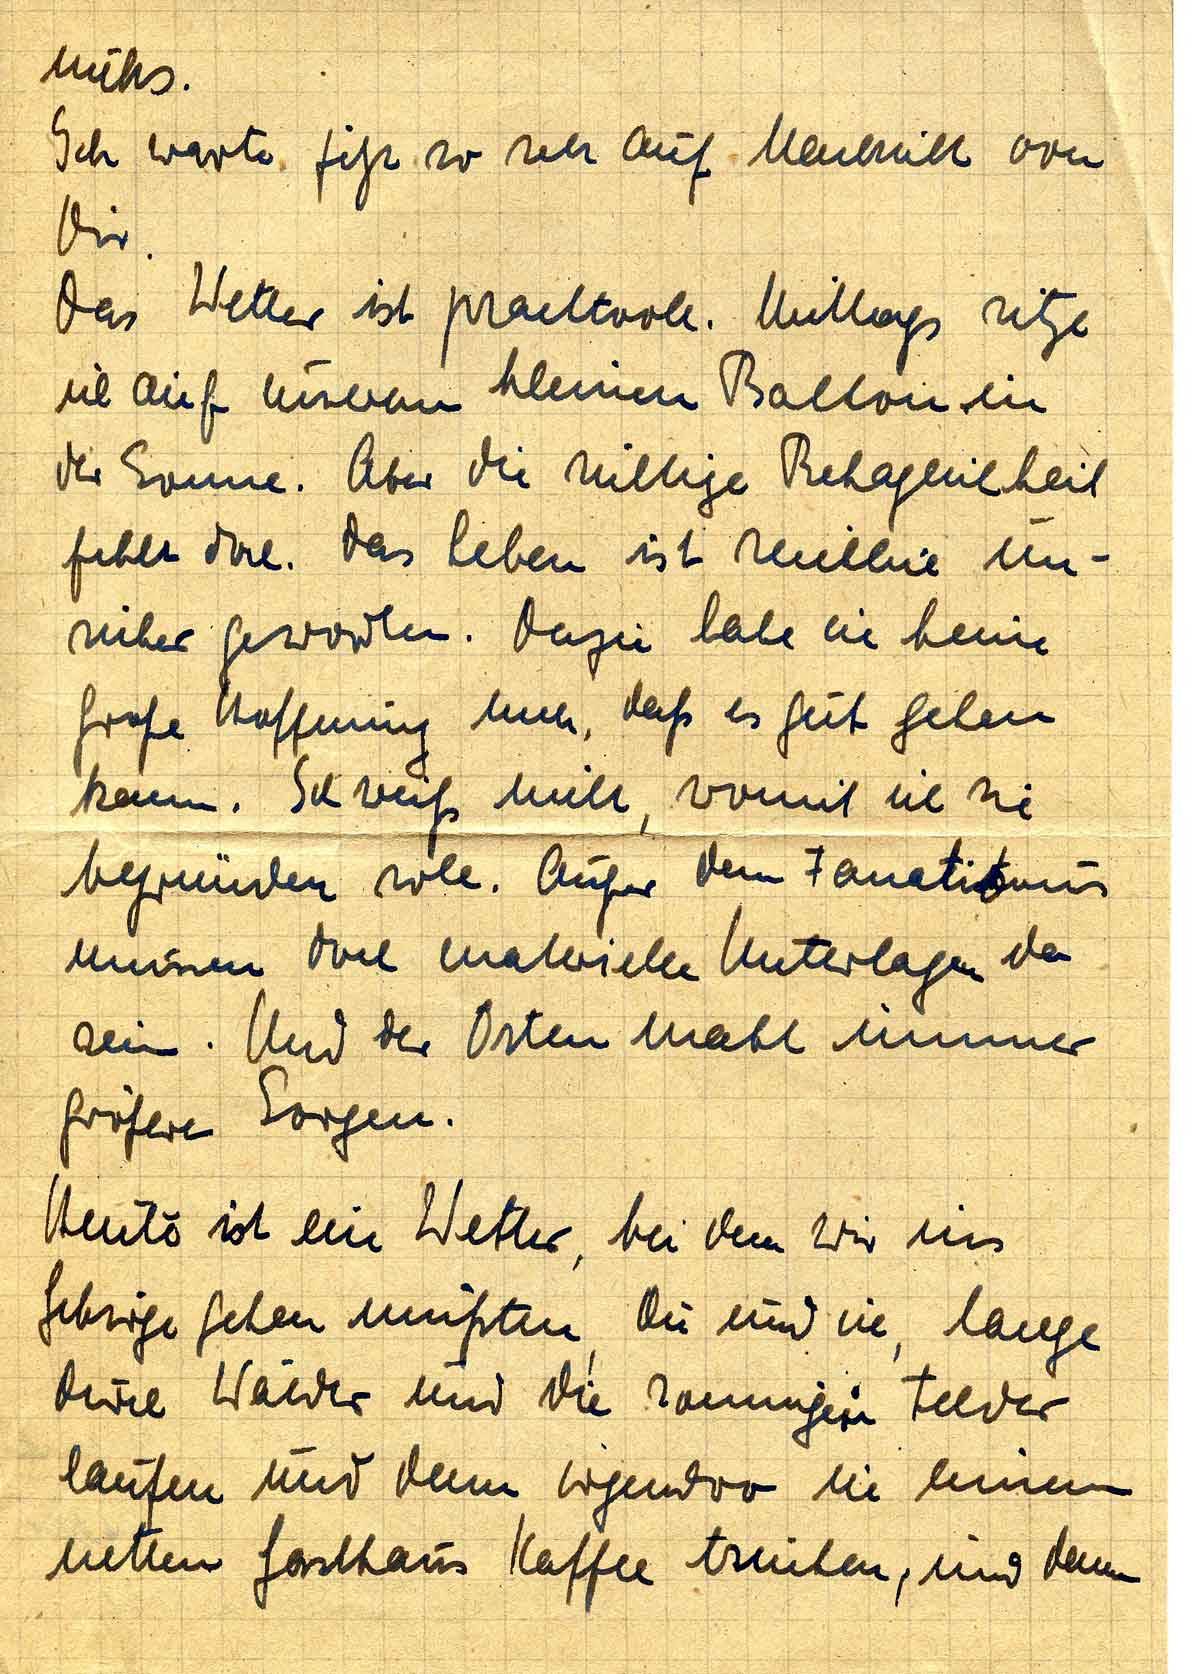 nichts.
Ich warte jetzt so sehr auf Nachricht von
Dir.
Das Wetter ist prachtvoll. Mittags sitze
ich auf unserem kleinen Balkon in
der Sonne. Aber die richtige Behaglichkeit
fehlt doch. Das Leben ist reichlich un-
sicher geworden. Dazu habe ich keine
große Hoffnung mehr, daß es gut gehen
kann. Ich weiß nicht, womit ich sie
begründen soll. Außer dem Fanatismus
müssen doch materielle Unterlagen da
sein. Und der Osten macht immer
größere Sorgen.
Heute ist ein Wetter, bei dem wir ins
Gebirge gehen müßten, Du und ich, lange
durch Wälder und die sonnigen Felder
laufen und dann irgendwo in einem
netten Gasthaus Kaffee trinken, und dann